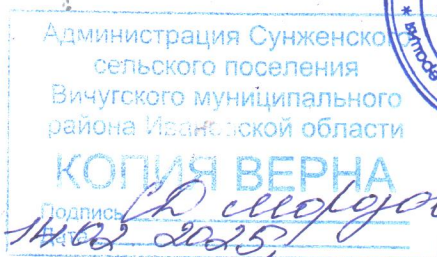 Администрация Сунженского
сельского поселения
Вичугского муниципального
района Ивановской области
КОПИЯ ВЕРНА
Подпись
Дата 14.02 2025,